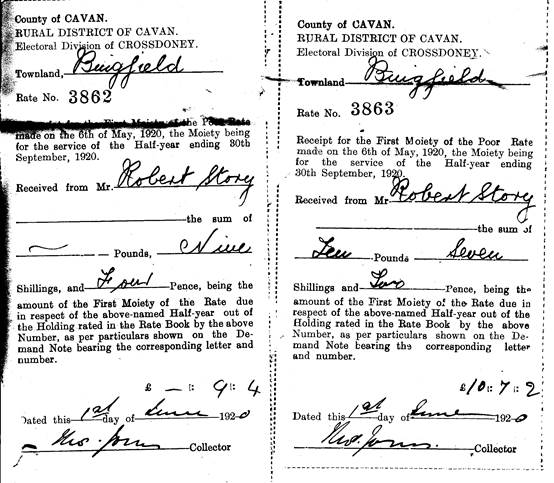 County of CAVAN.
RURAL DISTRICT OF CAVAN.
Electoral Division of CROSSDONEY.
Townland, Bingfield
Rate No. 3862
Receipt for the First Moiety of the Poor Rate
made on the 6th of May, 1920, the Moiety being
for the service of the Half-year ending 30th
September, 1920.
Received from Mr. Robert Story
the sum of
— Pounds, Nine
Shillings, and Four Pence, being the
amount of the First Moiety of the Rate due
in respect of the above-named Half-year out of
the Holding rated in the Rate Book by the above
Number, as per particulars shown on the De-
mand Note bearing the corresponding letter and
number.
£ — : 9 : 4
Dated this 1st day of June 1920
Collector
County of CAVAN.
RURAL DISTRICT OF CAVAN.
Electoral Division of CROSSDONEY.
Townland Bingfield
Rate No. 3863
Receipt for the First Moiety of the Poor Rate
made on the 6th of May, 1920, the Moiety being
for the service of the Half-year ending
30th September, 1920.
Received from Mr Robert Story
the sum of
Ten Pounds Seven
Shillings and Two Pence, being the
amount of the First Moiety of the Rate due in
respect of the above-named Half-year out of the
Holding rated in the Rate Book by the above
Number, as per particulars shown on the De-
mand Note bearing the corresponding letter
and number.
£10 : 7 : 2
Dated this 1st day of June 1920
Collector